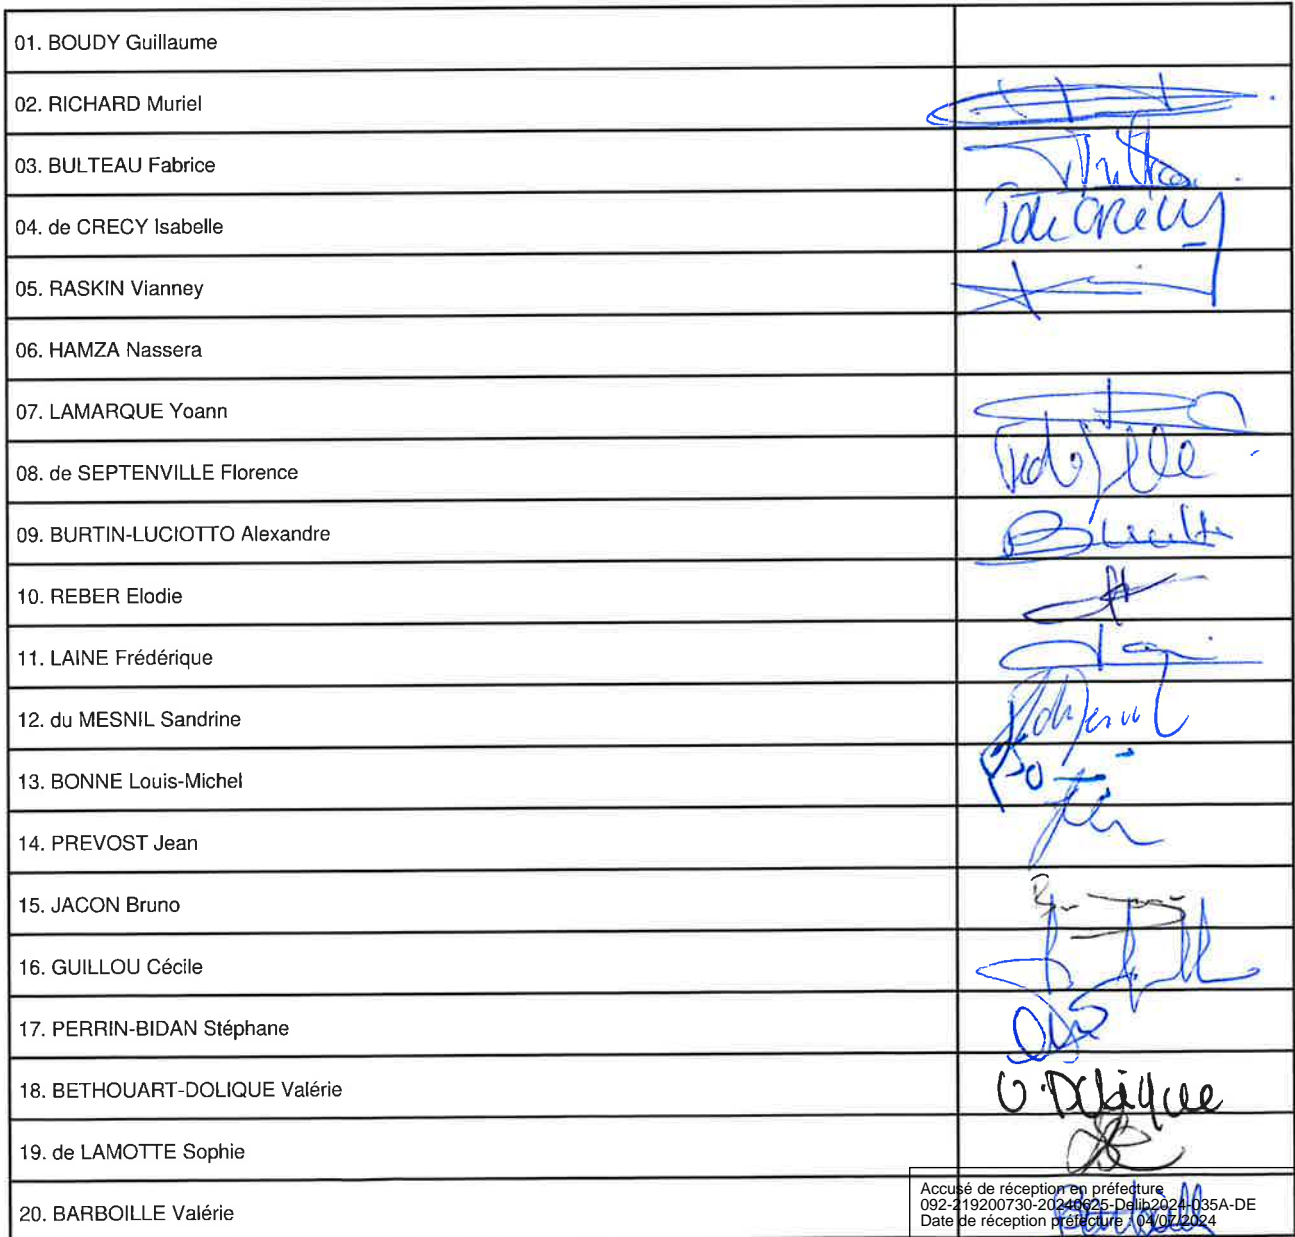 01. BOUDY Guillaume
02. RICHARD Muriel
03. BULTEAU Fabrice
04. de CRECY Isabelle
05. RASKIN Vianney
06. HAMZA Nassera
07. LAMARQUE Yoann
08. de SEPTENVILLE Florence
09. BURTIN-LUCIOTTO Alexandre
10. REBER Elodie
11. LAINE Frédérique
12. du MESNIL Sandrine
13. BONNE Louis-Michel
14. PREVOST Jean
15. JACON Bruno
16. GUILLOU Cécile
17. PERRIN-BIDAN Stéphane
18. BETHOUART-DOLIQUE Valérie
V. Dolique
19. de LAMOTTE Sophie
20. BARBOILLE Valérie
Accusé de réception en préfecture
092-219200730-20240625-Delib2024-035A-DE
Date de réception préfecture : 04/07/2024